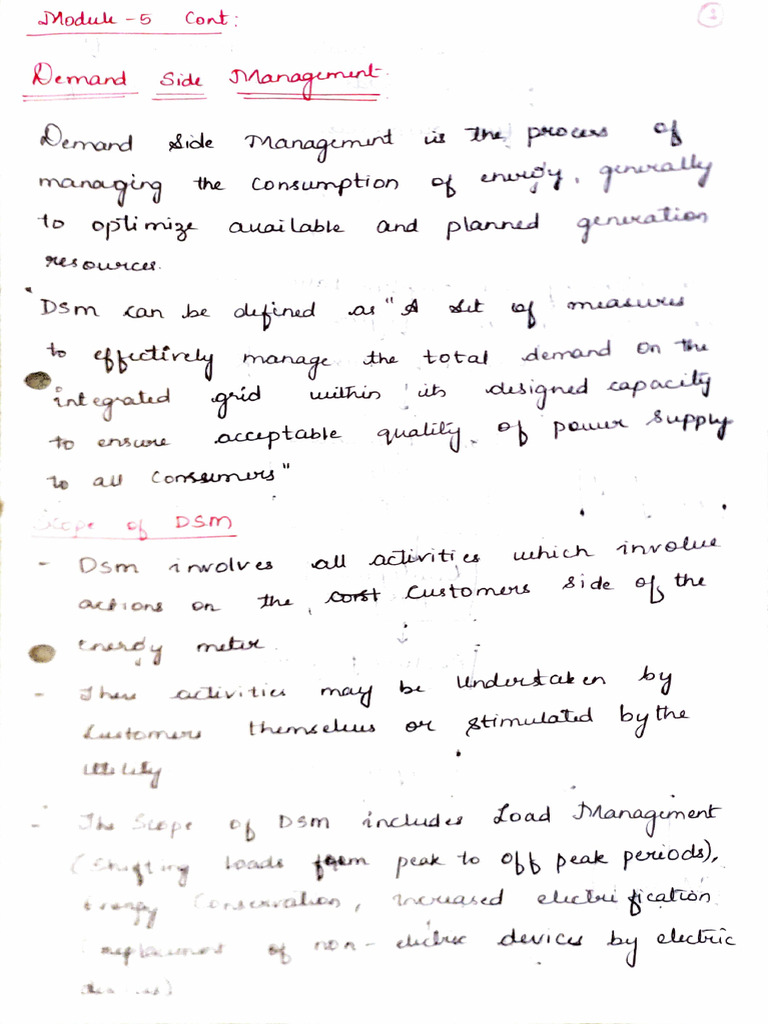 Module - 5 Cont:
Demand Side Management
Demand Side Management is the process of
managing the consumption of energy, generally
to optimize available and planned generation
resources.
DSM can be defined as "A set of measures
to effectively manage the total demand on the
integrated grid within its designed capacity
to ensure acceptable quality of power supply
to all consumers"
Scope of DSM
- DSM involves all activities which involve
actions on the Customers side of the
energy meter.
- These activities may be undertaken by
customers themselves or stimulated by the
utility
- The Scope of DSM includes Load Management
(Shifting loads from peak to off peak periods),
Energy Conservation, increased electrification
(replacement of non-electric devices by electric
devices)